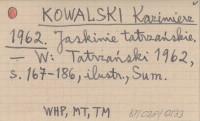 KOWALSKI Kazimierz
1962. Jaskinie tatrzańskie.
— W: Tatrzański 1962,
s. 167-186, ilustr., Sum.
WHP, MT, TM